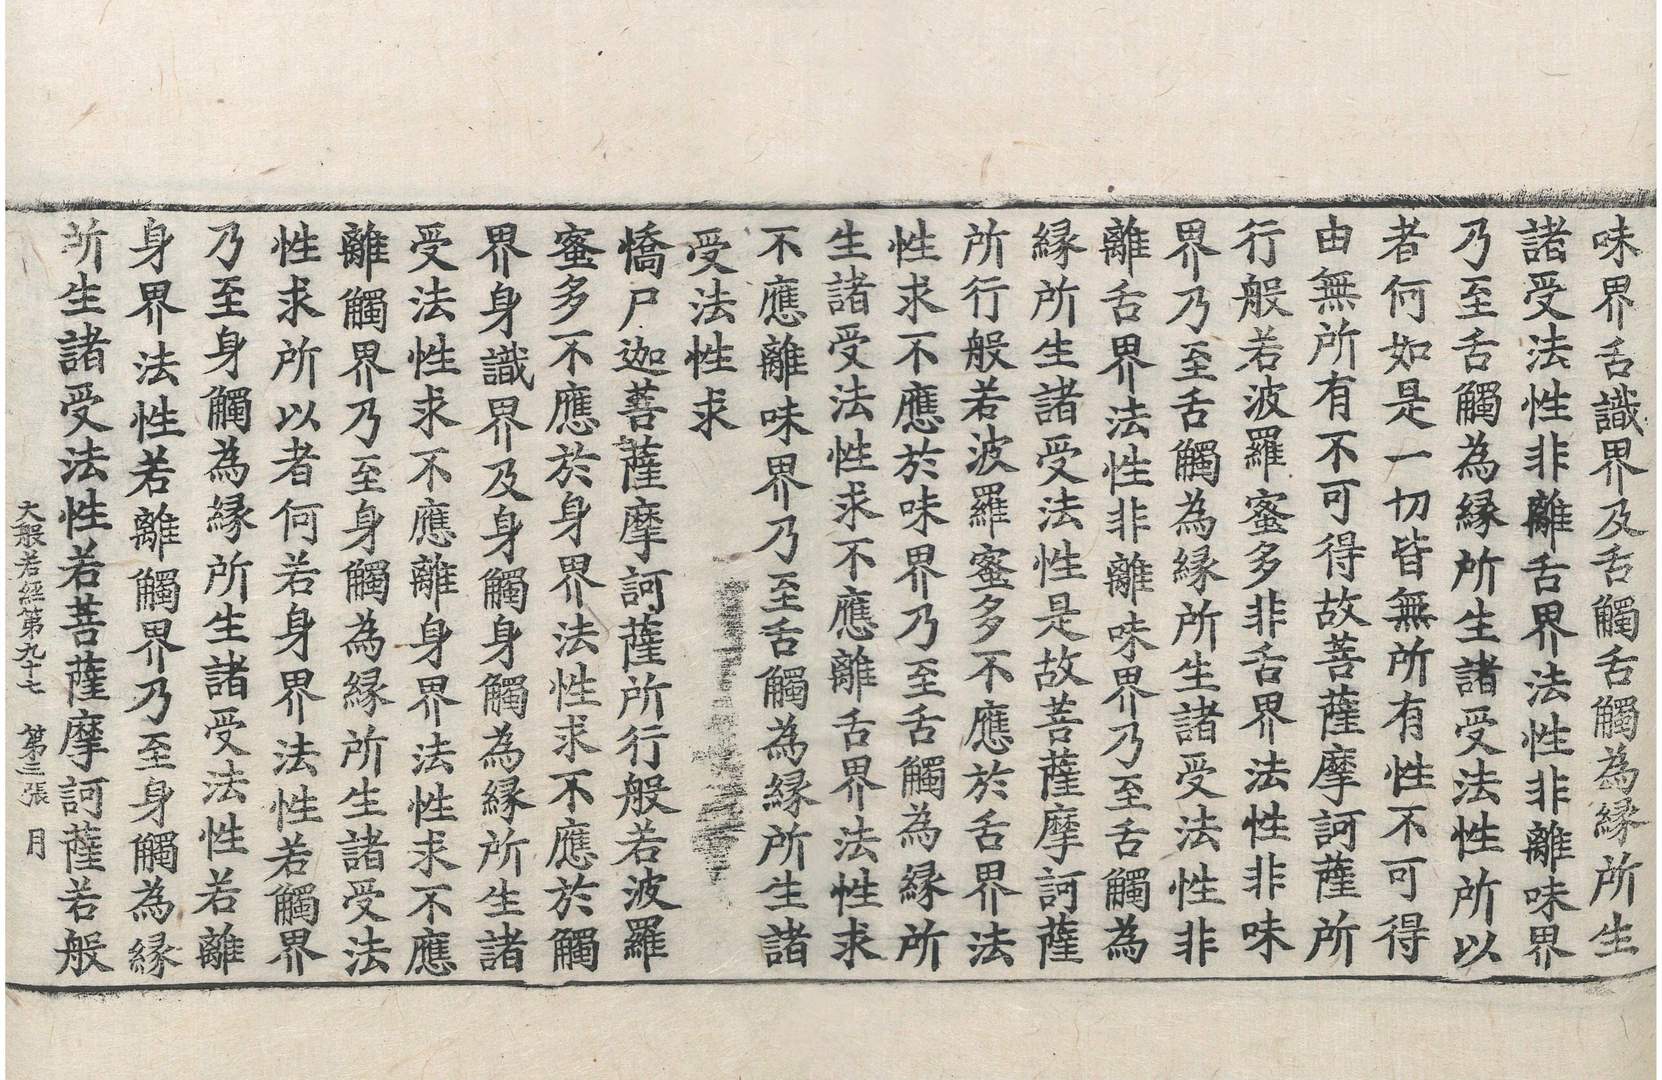 味界舌識界及舌觸舌觸為縁所生
諸受法性非離舌界法性非離味界
乃至舌觸為縁所生諸受法性所以
者何如是一切皆無所有性不可得
由無所有不可得故菩薩摩訶薩所
行般若波羅蜜多非舌界法性非味
界乃至舌觸為縁所生諸受法性非
離舌界法性非離味界乃至舌觸為
縁所生諸受法性是故菩薩摩訶薩
所行般若波羅蜜多不應於舌界法
性求不應於味界乃至舌觸為縁所
生諸受法性求不應離舌界法性求
不應離味界乃至舌觸為縁所生諸
受法性求
憍尸迦菩薩摩訶薩所行般若波羅
蜜多不應於身界法性求不應於觸
界身識界及身觸身觸為縁所生諸
受法性求不應離身界法性求不應
離觸界乃至身觸為縁所生諸受法
性求所以者何若身界法性若觸界
乃至身觸為縁所生諸受法性若離
身界法性若離觸界乃至身觸為縁
所生諸受法性若菩薩摩訶薩若般
大般若經第九十七 第三張 月